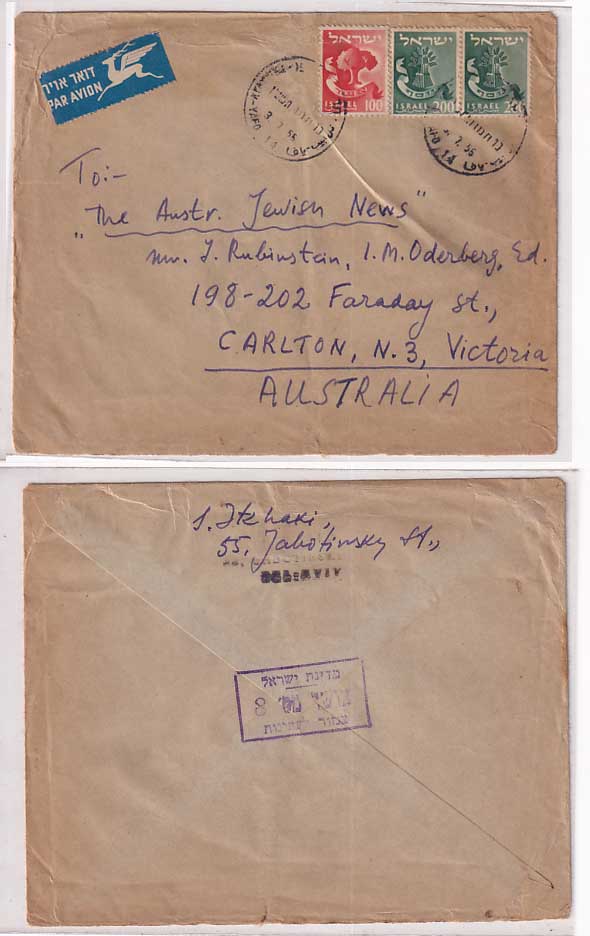 דואר אויר
PAR AVION
ישראל
100
ISRAEL
ישראל
200
ISRAEL
ישראל
ISRAEL
3.7.56
14
14
To:-
"The Austr. Jewish News"
I. Rubinstein, I.M. Oderberg, Ed.
198-202 Faraday St.,
CARLTON, N.3, Victoria
AUSTRALIA
Itzhaki,
55, Jabotinsky St.,
מדינת ישראל
8